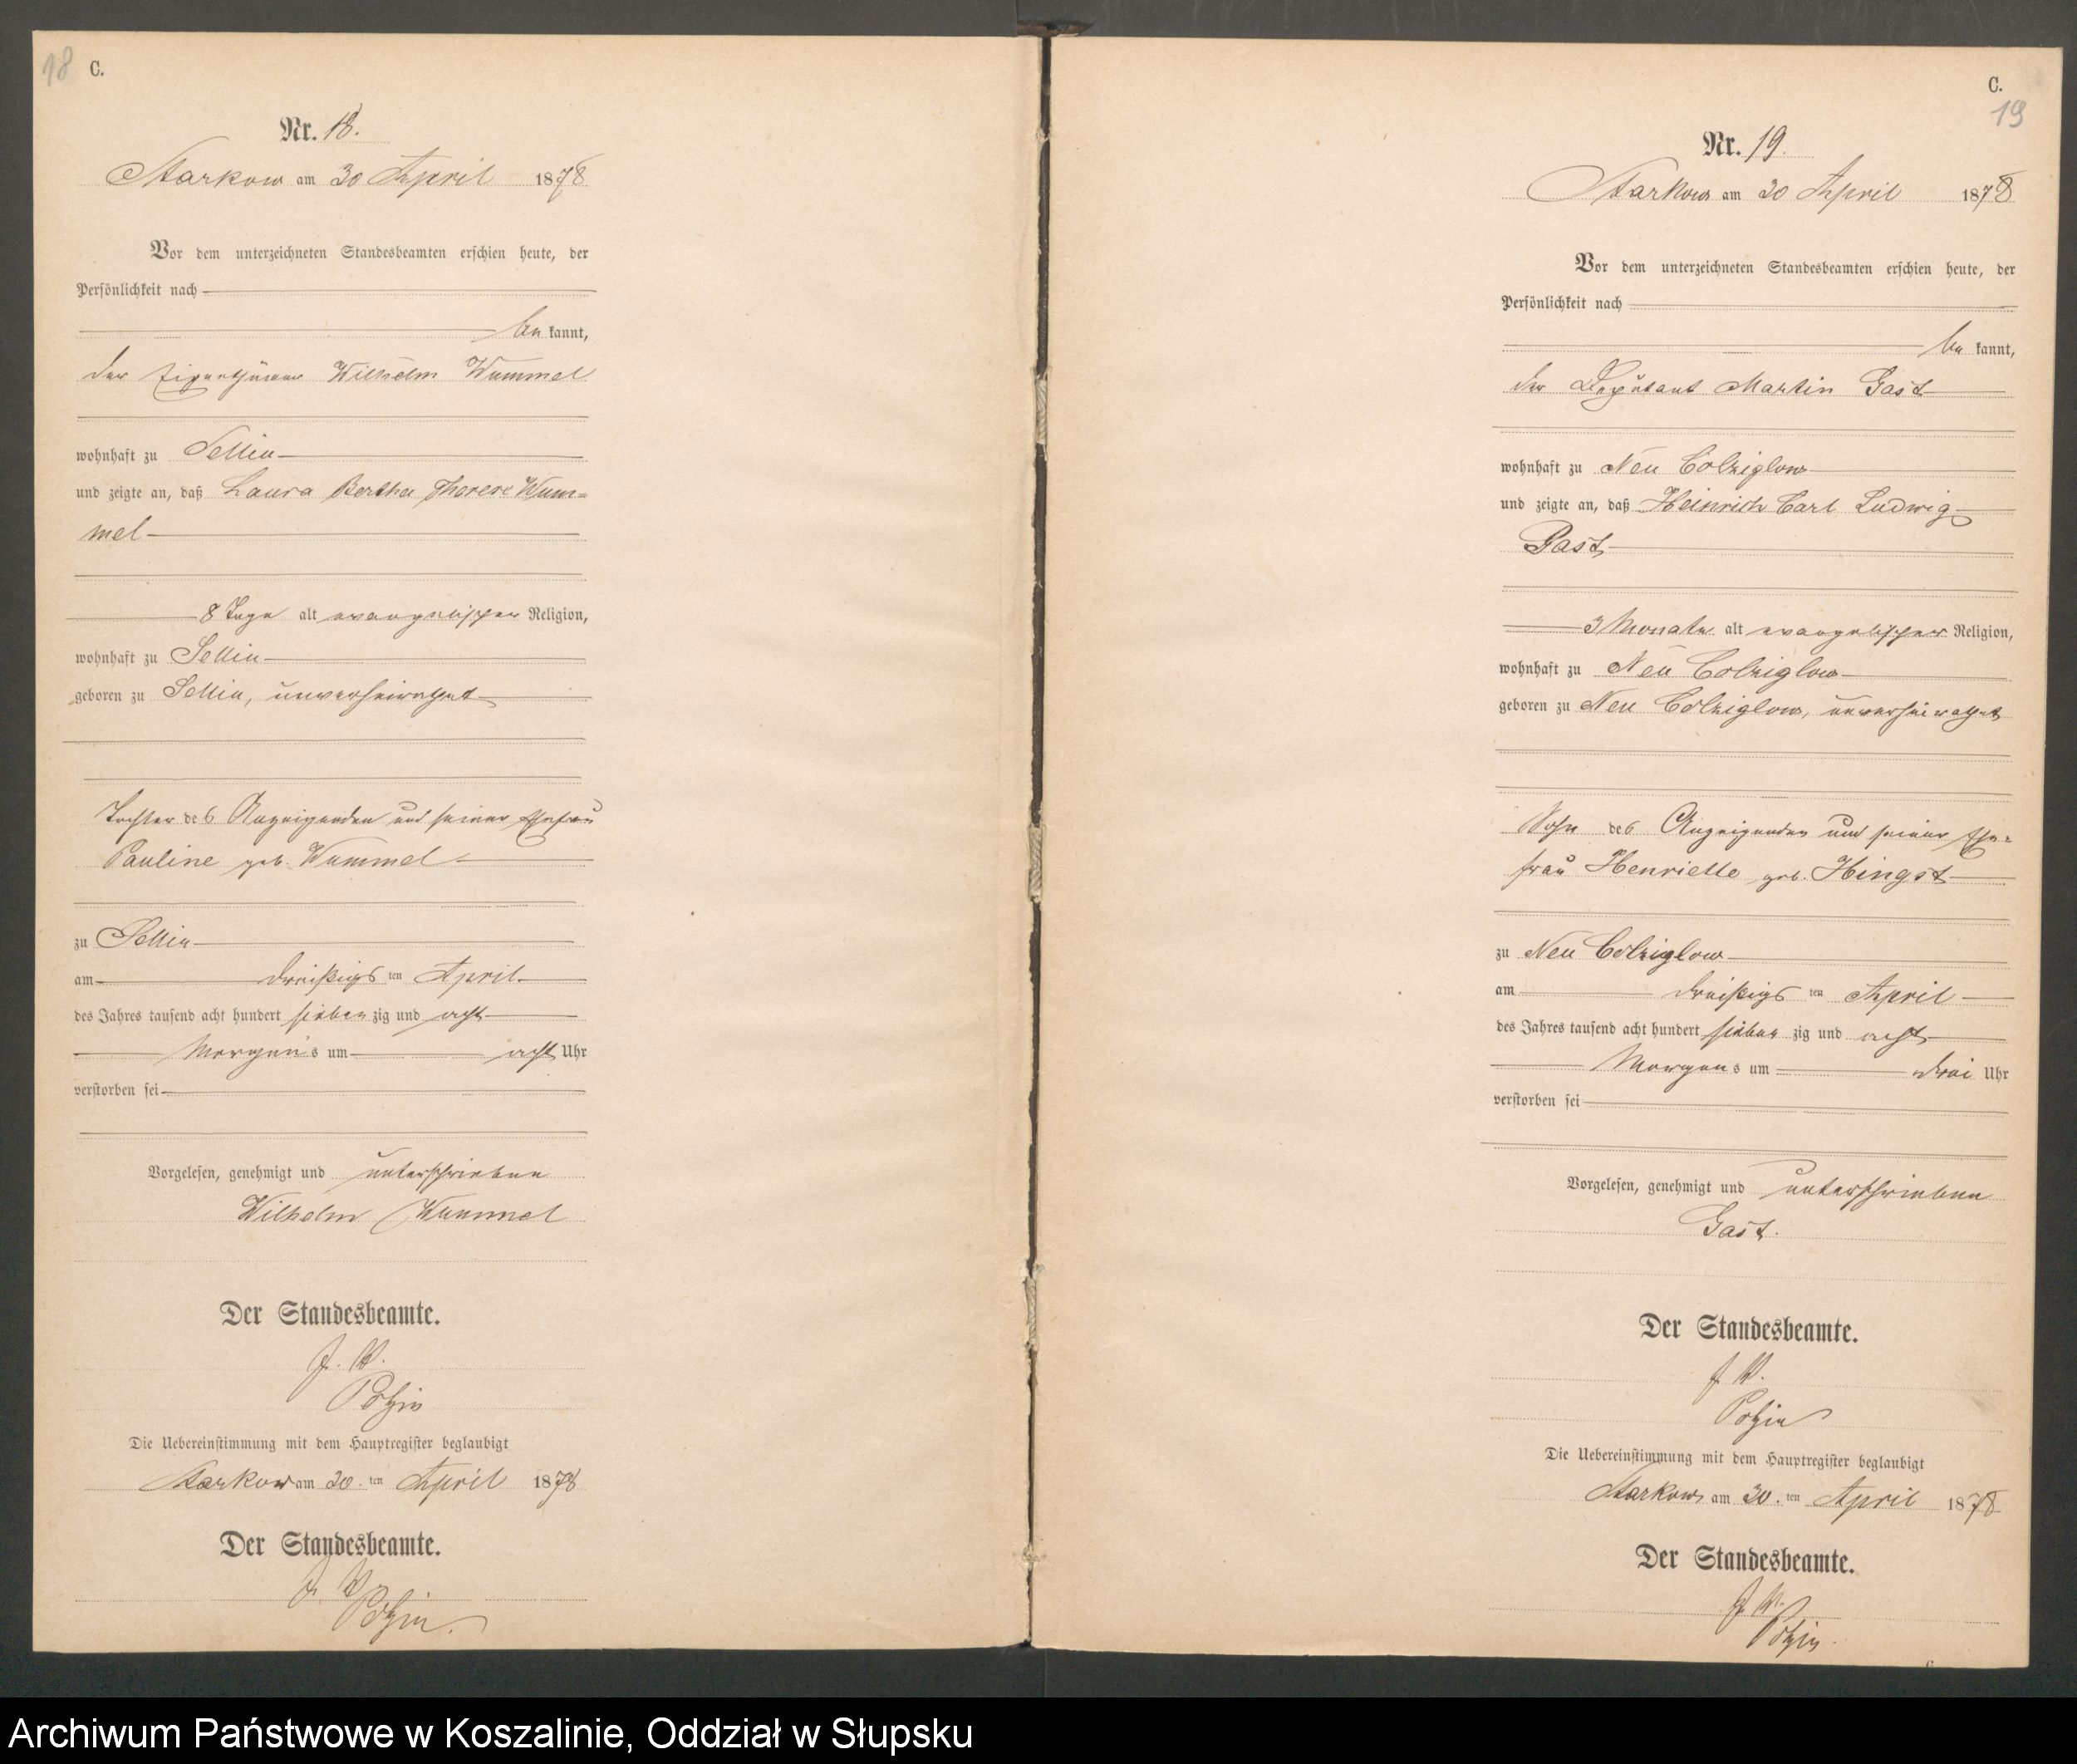 18 C.
Nr. 18.
Starkow am 30 April 1878
Vor dem unterzeichneten Standesbeamten erschien heute, der
Persönlichkeit nach
be kannt,
der Eigenthümer Wilhelm Wummel
wohnhaft zu Sellin
und zeigte an, daß Laura Bertha Therese Wum-
mel
8 Tage alt evangelischer Religion,
wohnhaft zu Sellin
geboren zu Sellin, unverheirathet
Tochter des Anzeigenden und seiner Ehefrau
Pauline geb. Wummel
zu Sellin
am dreißigsten April
des Jahres tausend acht hundert sieben zig und acht
Morgens um acht Uhr
verstorben sei
Vorgelesen, genehmigt und unterschrieben
Wilhelm Wummel
Der Standesbeamte.
J. V.
Die Uebereinstimmung mit dem Hauptregister beglaubigt
Starkow am 30. ten April 1878
Der Standesbeamte.
J. V.
C.
19
Nr. 19.
Starkow am 30 April 1878
Vor dem unterzeichneten Standesbeamten erschien heute, der
Persönlichkeit nach
be kannt,
der Deputant Martin Gast
wohnhaft zu Neu Colziglow
und zeigte an, daß Heinrich Carl Ludwig
Gast
3 Monate alt evangelischer Religion,
wohnhaft zu Neu Colziglow
geboren zu Neu Colziglow, unverheirathet
Sohn des Anzeigenden und seiner Ehe-
frau Henriette geb. Hingst
zu Neu Colziglow
am dreißigsten April
des Jahres tausend acht hundert sieben zig und acht
Morgens um drei Uhr
verstorben sei
Vorgelesen, genehmigt und unterschrieben
Gast.
Der Standesbeamte.
J. V.
Die Uebereinstimmung mit dem Hauptregister beglaubigt
Starkow am 30. ten April 1878
Der Standesbeamte.
J. V.
Archiwum Państwowe w Koszalinie, Oddział w Słupsku